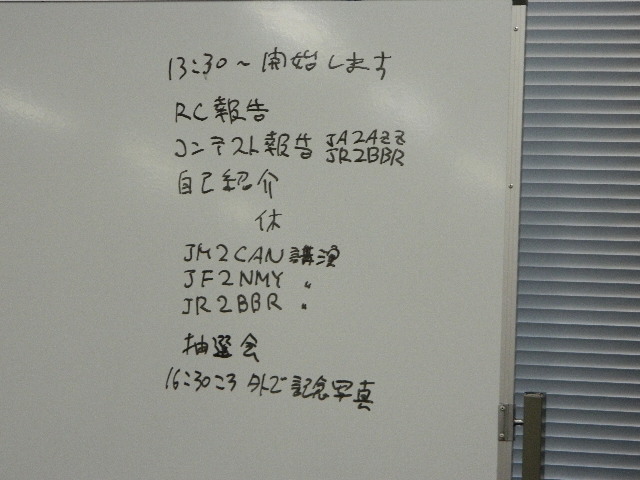 13:30～開始します
RC報告
コンテスト報告 JA2AZZ
JR2BBR
自己紹介
休
JM2CAN 講演
JF2NMY 〃
JR2BBR 〃
抽選会
16:30ころ 外で記念写真